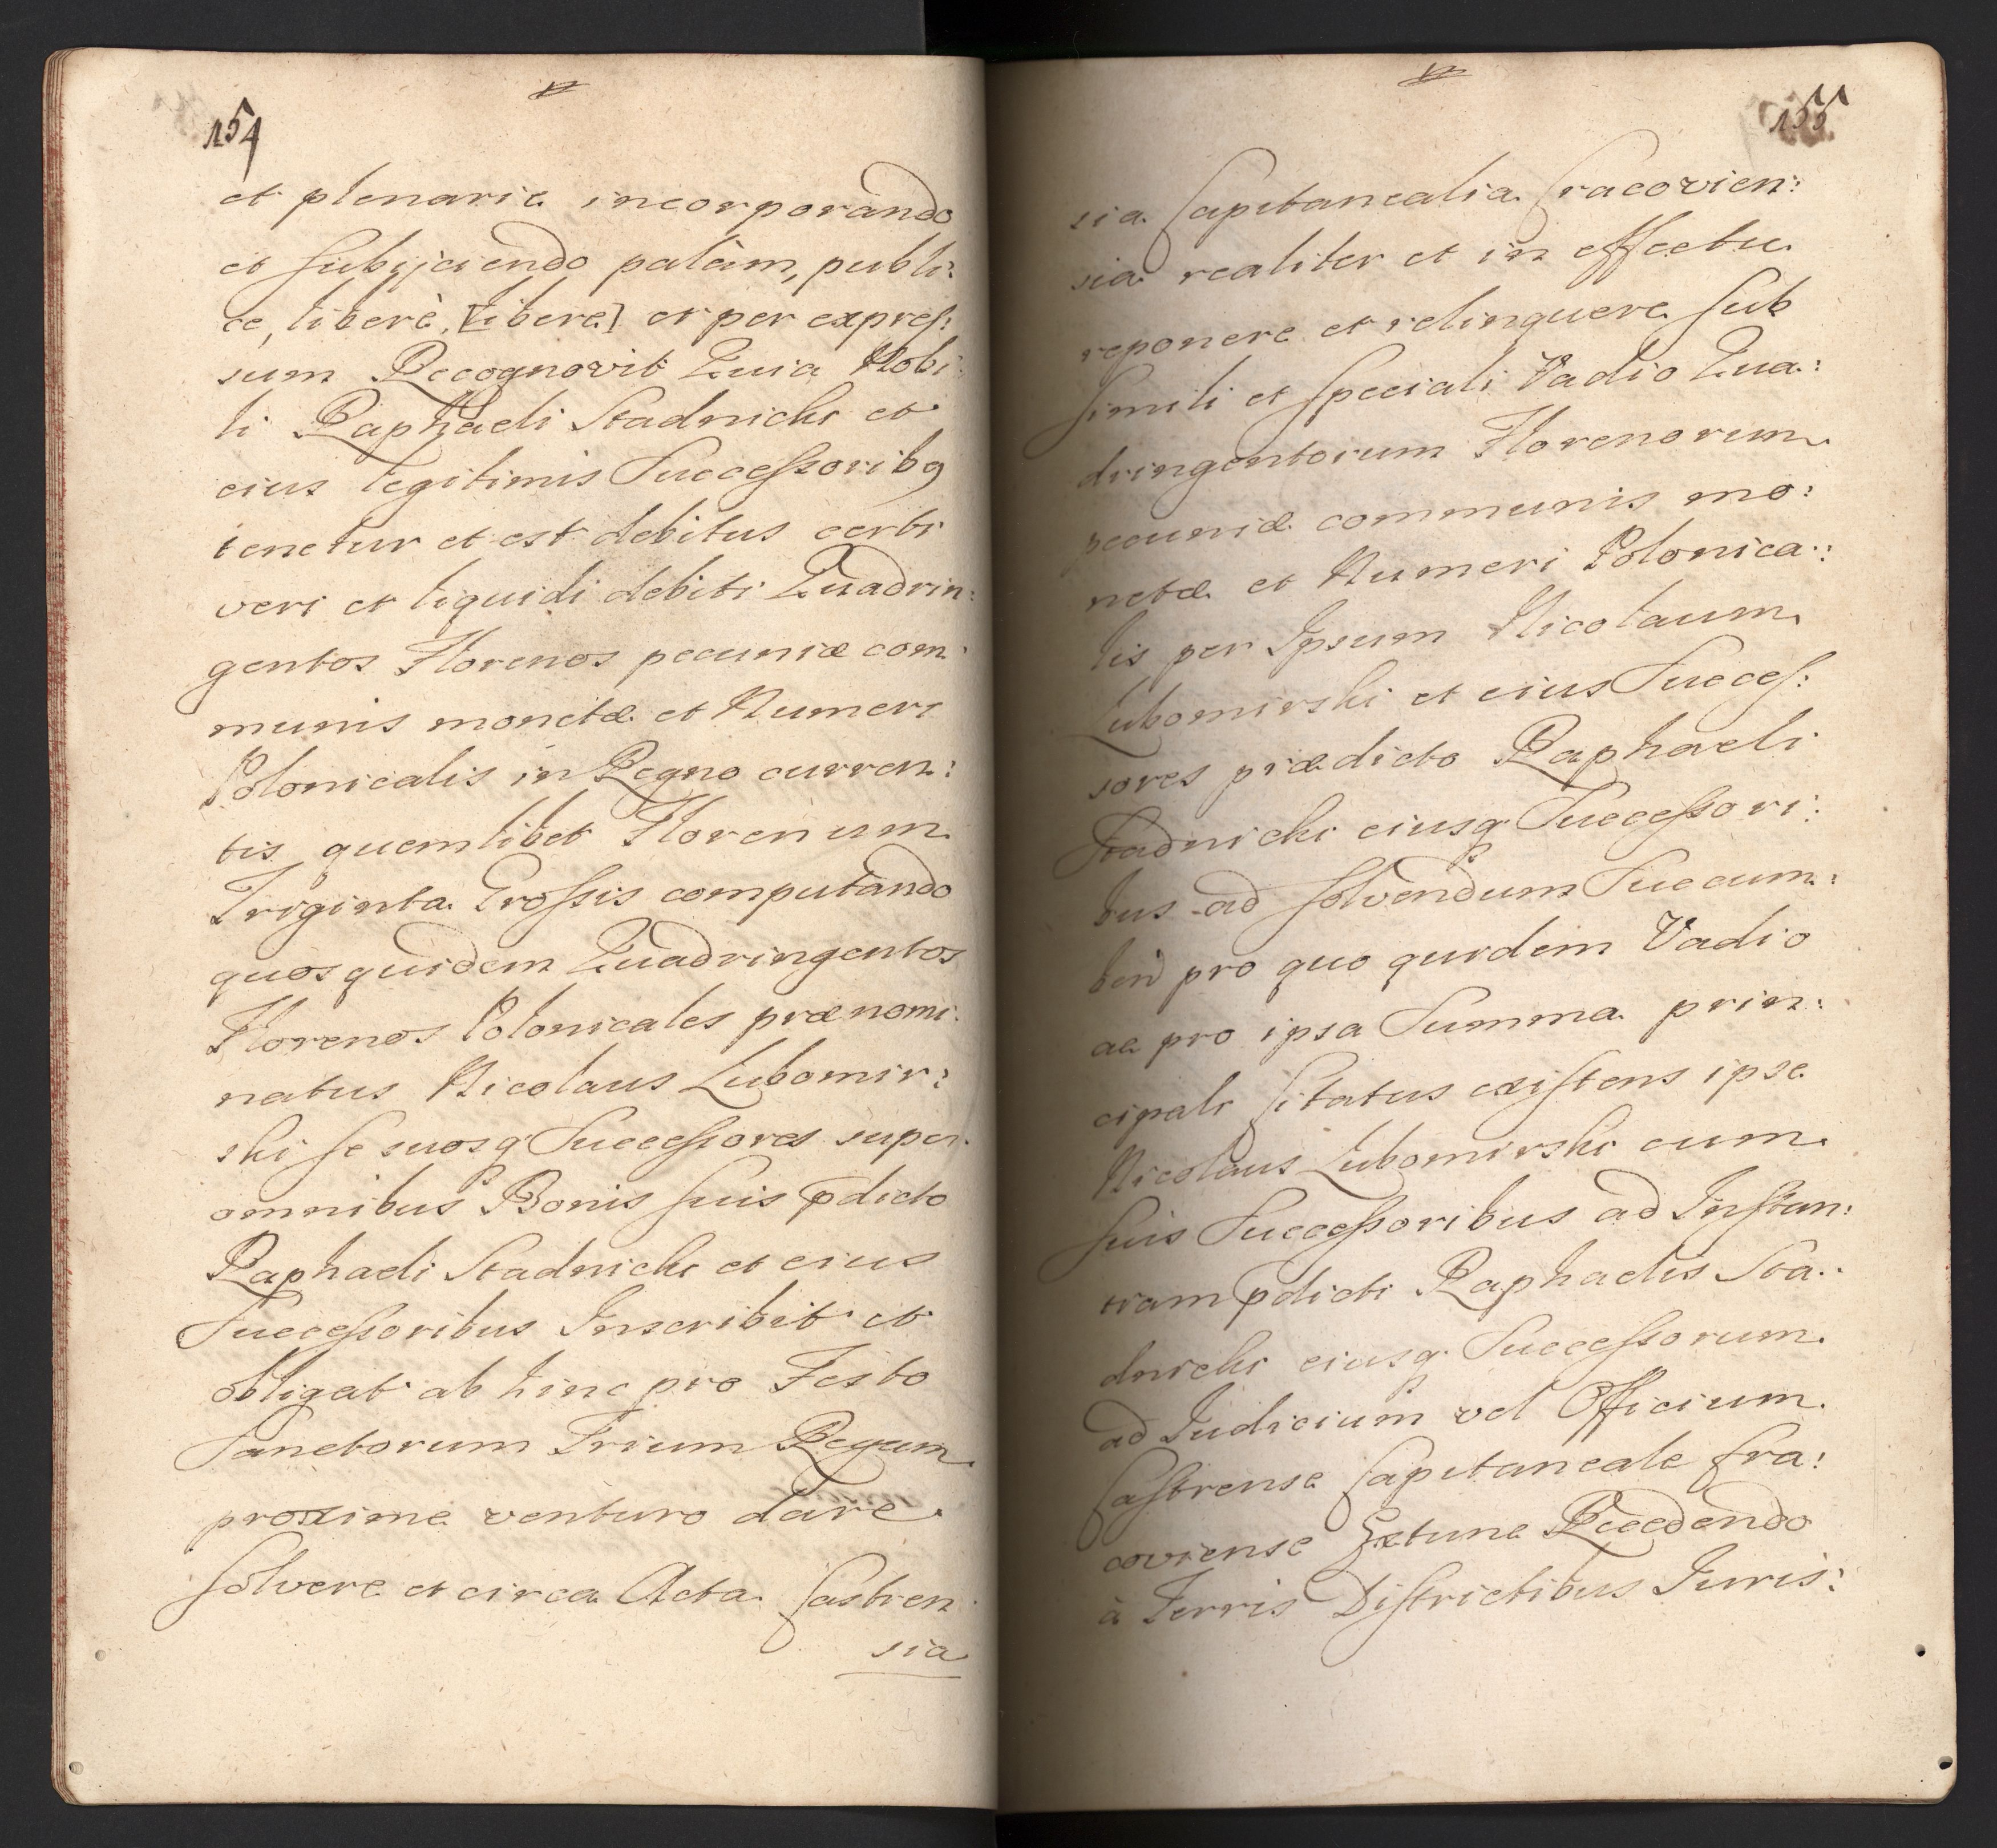 154
et plenarie incorporando
et subyjciendo palam, publi:
ce, liberè, [libere] et per expres:
sum Recognovit Quia Nobi:
li Raphaeli Stadnicki et
eius legitimis Successoribq
tenetur et est debitus certi
veri et liquidi debiti Quadrin:
gentos Florenos pecuniæ com:
munis monetæ et Numeri
Polonicalis in Regno curren:
tis quemlibet Florenum
Triginta Grossis computando
quos quidem Quadringentos
Florenos Polonicales prænomi:
natus Nicolaus Lubomir:
ski se suosq Successores super
omnibus Bonis suis pdicto
Raphaeli Stadnicki et eius
Successoribus Inscribit et
obligat ab hinc pro Festo
Sanctorum Trium Regum
proxime venturo dare
solvere et circa Acta Castren
sia
155
sia Capitanealia Cracovien:
sia realiter et in effectu
reponere et relinquere sub
simili et speciali Vadio Qua:
dringentorum Florenorum
pecuniæ communis mo:
netæ et Numeri Polonica:
lis per Ipsum Nicolaum
Lubomirski et eius Succes:
sores prædicto Raphaeli
Stadnicki eiusq Successori:
bus ad solvendum Succum:
ben pro quo quidem Vadio
ac pro ipsa Summa prin:
cipali Citatus existens ipse
Nicolaus Lubomirski cum
suis Successoribus ad Instan:
tiam pdicti Raphaelis Sta:
dnicki eiusq Successorum
ad Iudicium vel Officium
Castrense Capitaneale Cra:
coviense Extunc Recedendo
à Terris Districtibus Iuris: